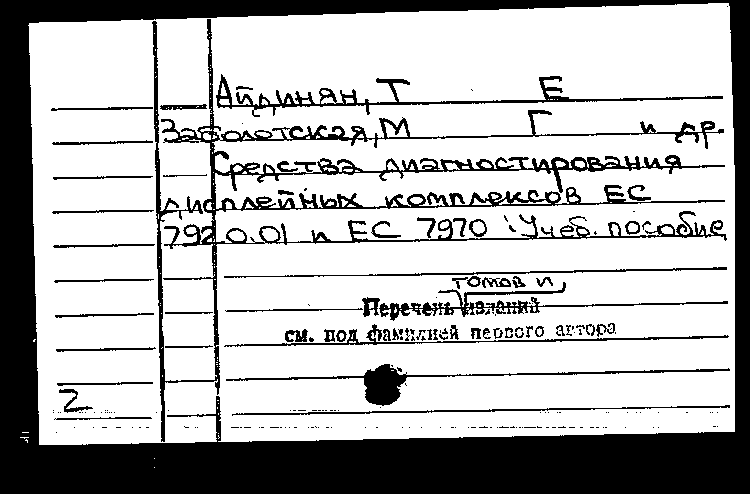 Айдинян, Т Е
Заболотская, М Г и др.
Средства диагностирования
дисплейных комплексов ЕС
7920.01 и ЕС 7970 : Учеб. пособие
томов и
Перечень изданий
см. под фамилией первого автора
2